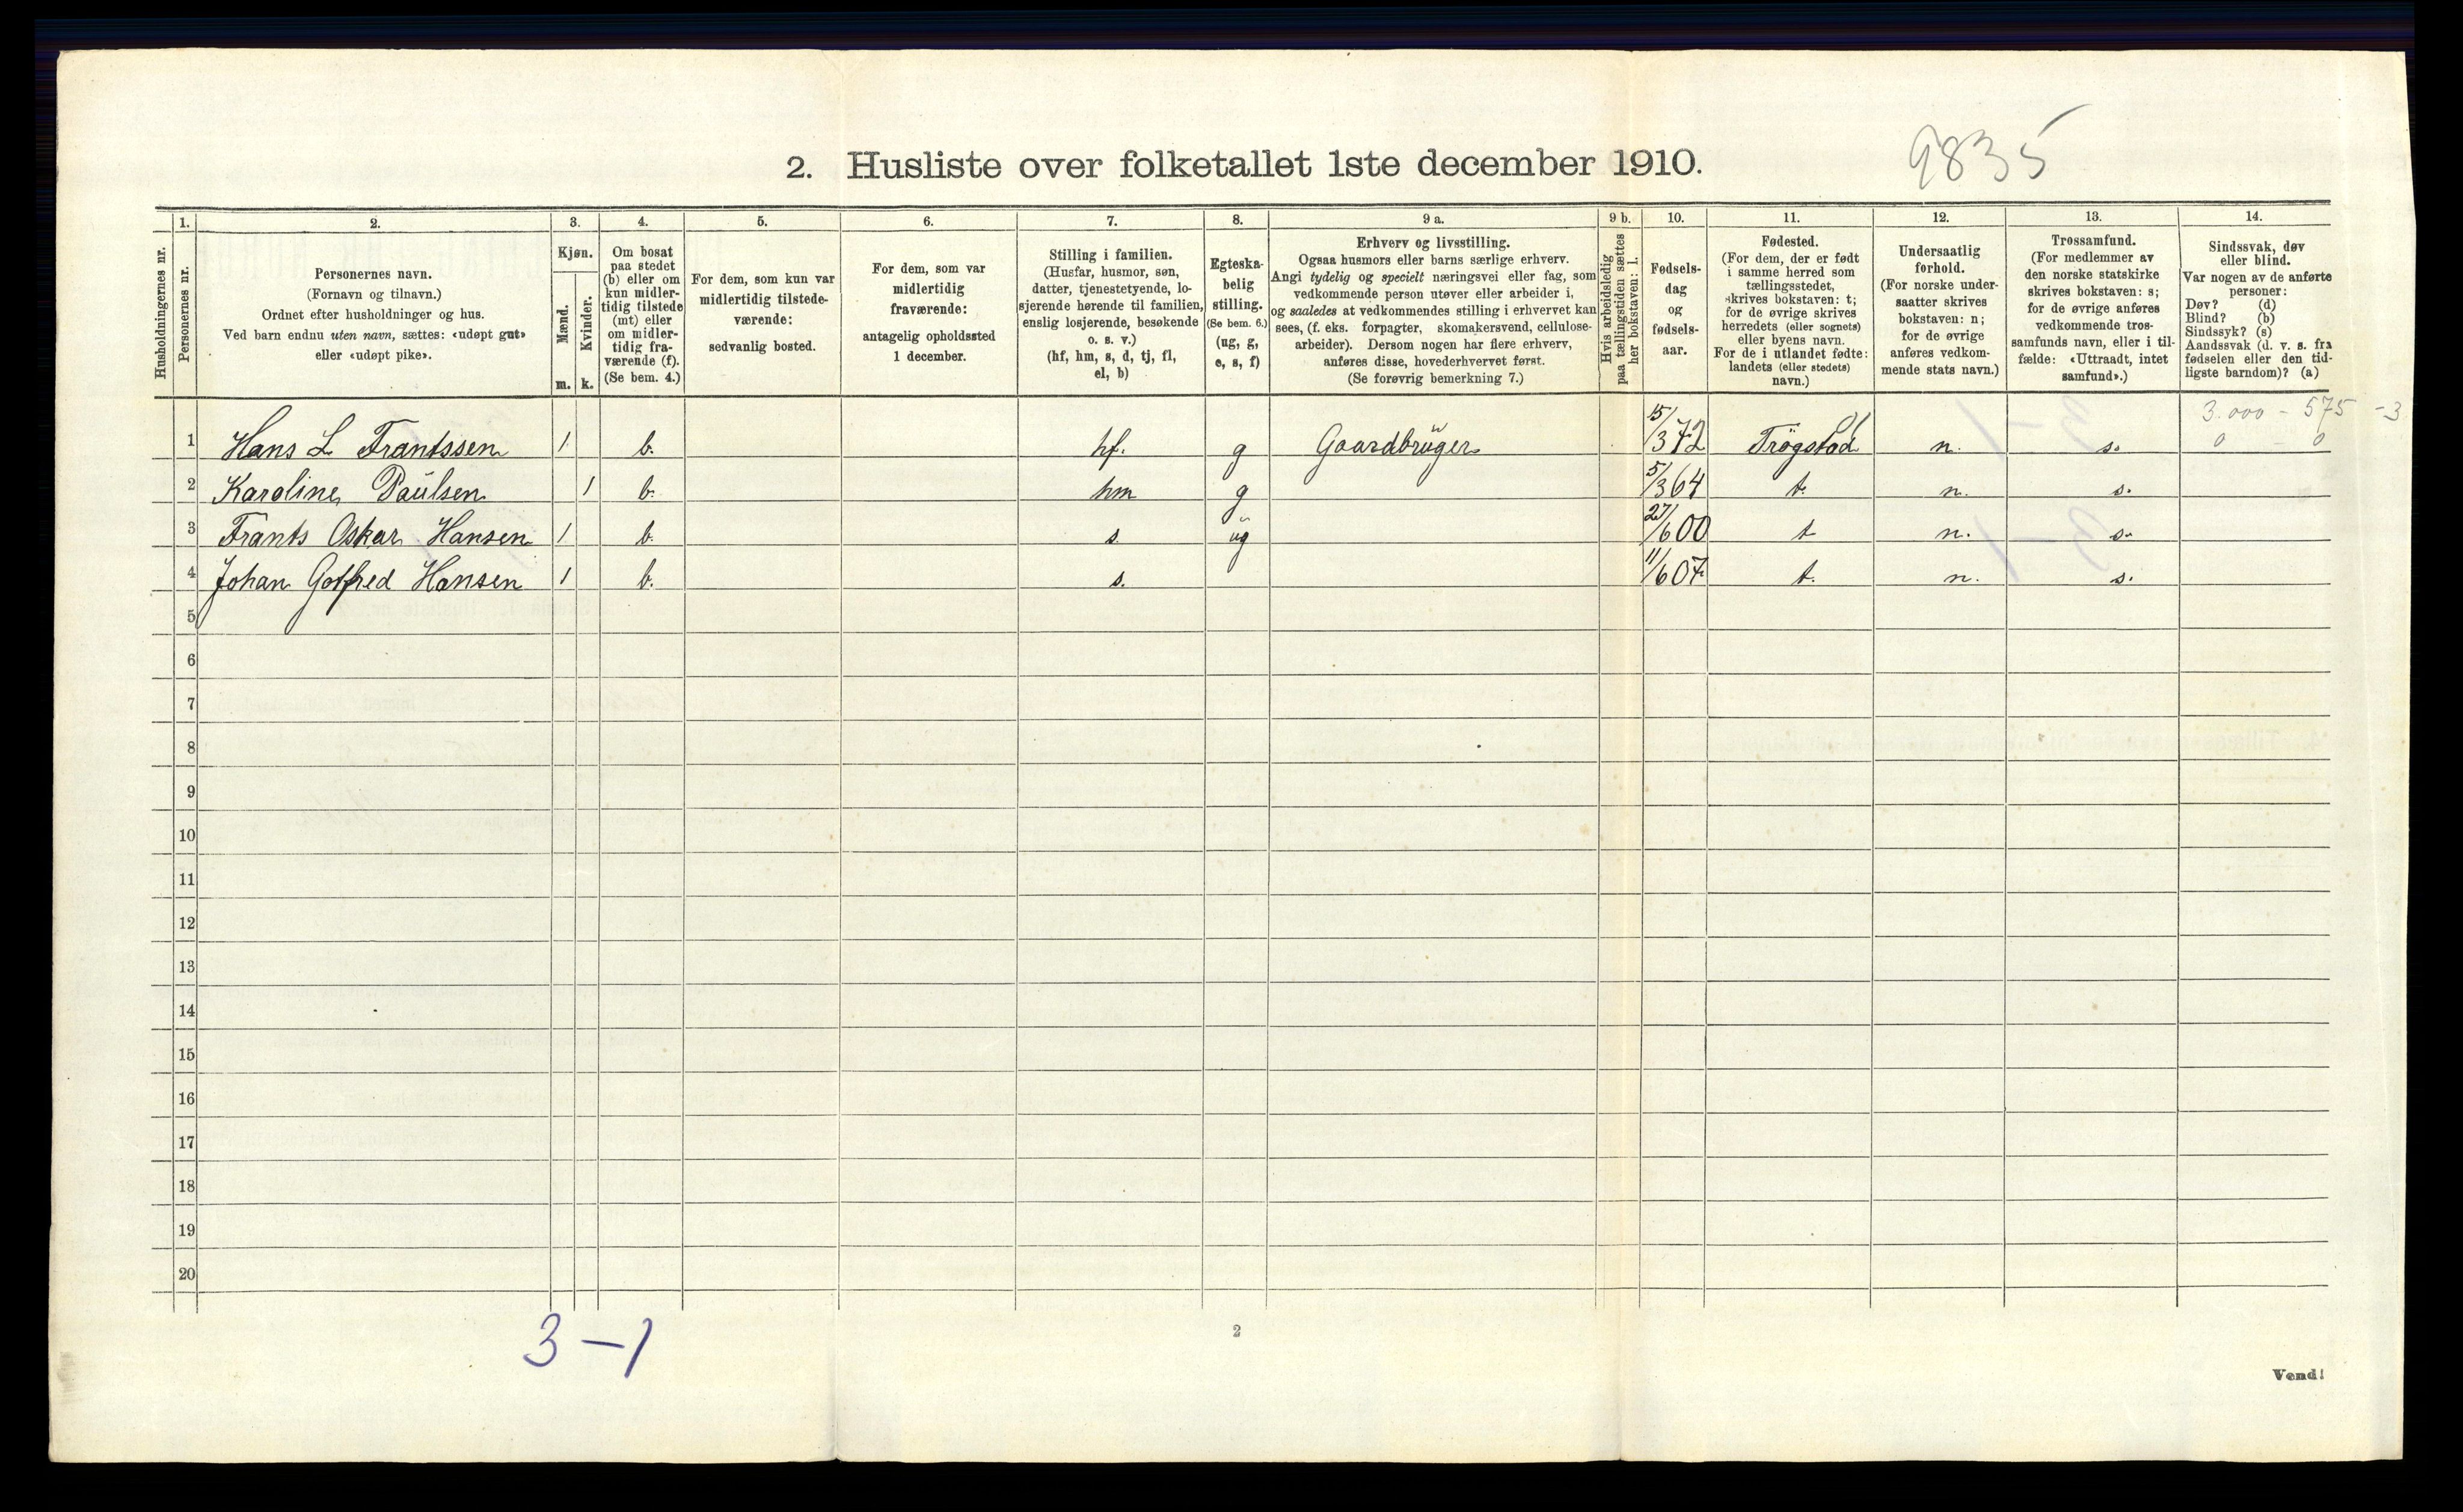 9835
2. Husliste over folketallet 1ste december 1910.
Husholdningernes nr.
1.
Personernes nr.
2.
Personernes navn.
(Fornavn og tilnavn.)
Ordnet efter husholdninger og hus.
Ved barn endnu uten navn, sættes: «udøpt gut»
eller «udøpt pike».
3.
Kjøn.
Mænd.
m.
Kvinder.
k.
4.
Om bosat
paa stedet
(b) eller om
kun midler-
tidig tilstede
(mt) eller
om midler-
tidig fra-
værende (f).
(Se bem. 4.)
5.
For dem, som kun var
midlertidig tilstede-
værende:
sedvanlig bosted.
6.
For dem, som var
midlertidig
fraværende:
antagelig opholdssted
1 december.
7.
Stilling i familien.
(Husfar, husmor, søn,
datter, tjenestetyende, lo-
sjerende hørende til familien,
enslig losjerende, besøkende
o. s. v.)
(hf, hm, s, d, tj, fl,
el, b)
8.
Egteska-
belig
stilling.
(Se bem. 6.)
(ug, g,
e, s, f)
9 a.
Erhverv og livsstilling.
Ogsaa husmors eller barns særlige erhverv.
Angi tydelig og specielt næringsvei eller fag, som
vedkommende person utøver eller arbeider i,
og saaledes at vedkommendes stilling i erhvervet kan
sees, (f. eks. forpagter, skomakersvend, cellulose-
arbeider). Dersom nogen har flere erhverv,
anføres disse, hovederhvervet først.
(Se forøvrig bemerkning 7.)
9 b.
Hvis arbeidsledig
paa tællingstiden sættes
her bokstaven: l.
10.
Fødsels-
dag
og
fødsels-
aar.
11.
Fødested.
(For dem, der er født
i samme herred som
tællingsstedet,
skrives bokstaven: t;
for de øvrige skrives
herredets (eller sognets)
eller byens navn.
For de i utlandet fødte:
landets (eller stedets)
navn.)
12.
Undersaatlig
forhold.
(For norske under-
saatter skrives
bokstaven: n;
for de øvrige
anføres vedkom-
mende stats navn.)
13.
Trossamfund.
(For medlemmer av
den norske statskirke
skrives bokstaven: s;
for de øvrige anføres
vedkommende tros-
samfunds navn, eller i til-
fælde: «Uttraadt, intet
samfund».)
14.
Sindssvak, døv
eller blind.
Var nogen av de anførte
personer:
Døv? (d)
Blind? (b)
Sindssyk? (s)
Aandssvak (d. v. s. fra
fødselen eller den tid-
ligste barndom)? (a)
3.000 - 575 - 3
1 Hans L Frantssen 1 b. hf. g Gaardbrüger 15/3 72 Trögstad 01 n. s. 0 - 0
2 Karoline Paulsen 1 b. hm g 5/3 64 t. n. s.
3 Frants Oskar Hansen 1 b. s üg 27/6 00 t n. s.
4 Johan Gotfred Hansen 1 b. s. 11/6 07 t. n. s.
5
6
7
8
9
10
11
12
13
14
15
16
17
18
19
20
3-1
2
Vend!